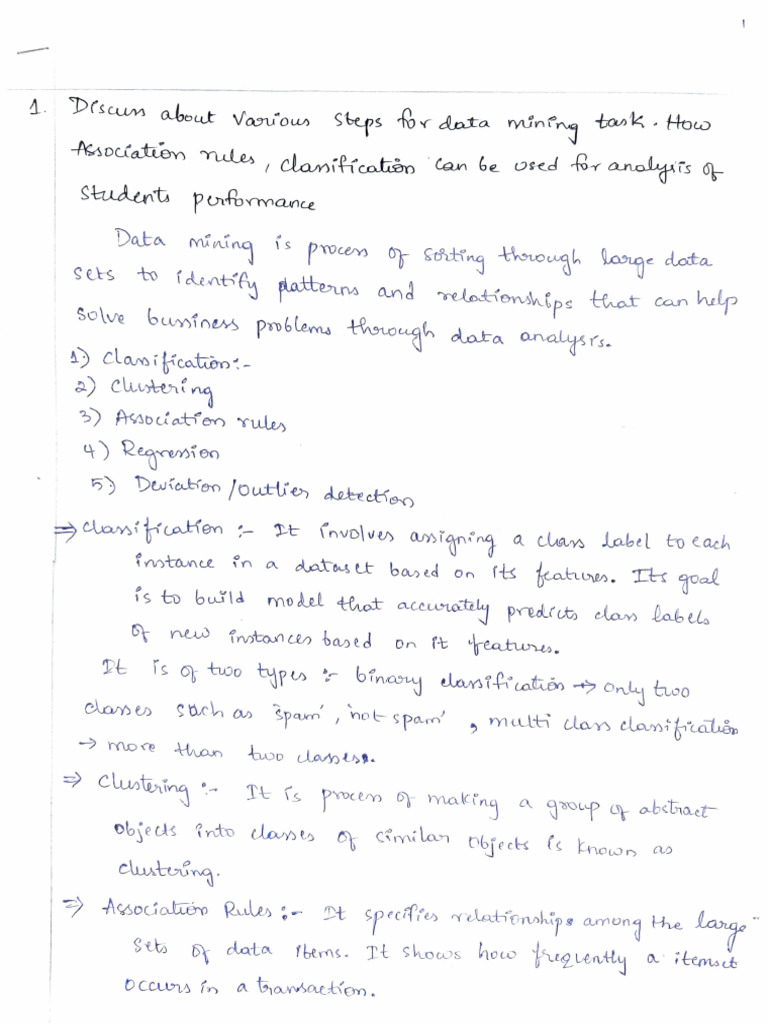 1
1. Discuss about various steps for data mining task. How
Association rules, classification can be used for analysis of
students performance
Data mining is process of sorting through large data
sets to identify patterns and relationships that can help
solve bussiness problems through data analysis.
1) Classification:-
2) Clustering
3) Association rules
4) Regression
5) Deviation/outlier detection
⇒ Classification :- It involves assigning a class label to each
instance in a dataset based on its features. Its goal
is to build model that accurately predicts class labels
of new instances based on it features.
It is of two types :- binary classification → only two
classes such as 'spam', 'not spam', multi class classification
→ more than two classes.
⇒ Clustering :- It is process of making a group of abstract
objects into classes of similar objects is known as
clustering.
⇒ Association Rules :- It specifies relationships among the large
sets of data items. It shows how frequently a itemset
occurs in a transaction.